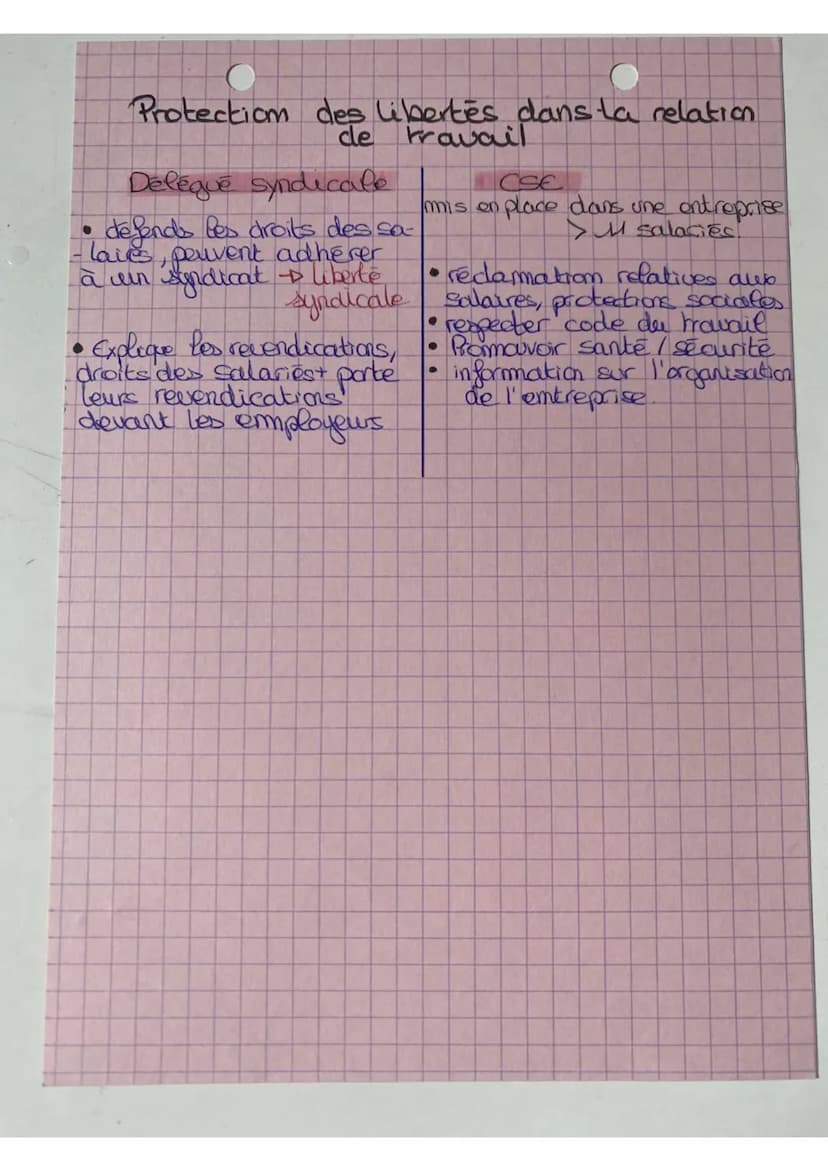 Protection des libertés dans la relation
de travail
Délégué syndicale
• défends les droits des sa-
-lariés, peuvent adhérer
à un syndicat → liberté
syndicale
• Explique les revendications,
droits des salariés + porte
leurs revendications
devant les employeurs
CSE
mis en place dans une entreprise
> 11 salariés.
• réclamation relatives aux
salaires, protections sociales
• respecter code du travail
• Promouvoir santé / sécurité
• information sur l'organisation
de l'entreprise.